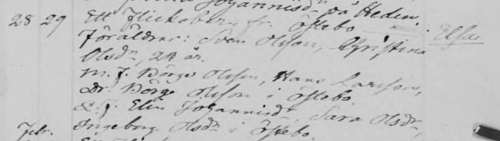 Johannisdr på Heden.
28 29 Ett Flickebarn fr. Östebo Elsa
Föräldrar: Sven Olsson, Christina
Olsdr, 24 år.
M. f. Börge Olsson, Hans Larsson,
Dr. Börge Olsson i Östebo.
Q. f. Elin Johannisdr, Sara Olsdr,
Febr. Ingeborg Olsdr i Östebo.